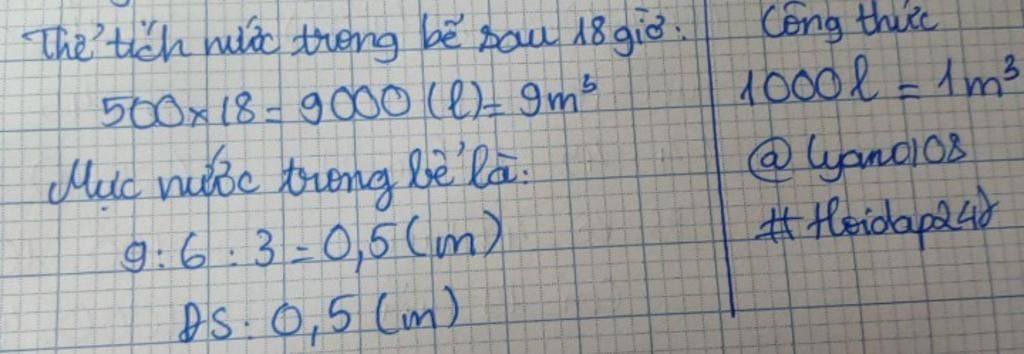 Thể tích nước trong bể sau 18 giờ:
500 x 18 = 9000 (l) = 9m³
Mực nước trong bể là:
9 : 6 : 3 = 0,5 (m)
ĐS: 0,5 (m)
Công thức
1000l = 1m³
@ lyano108
# Hoidap247